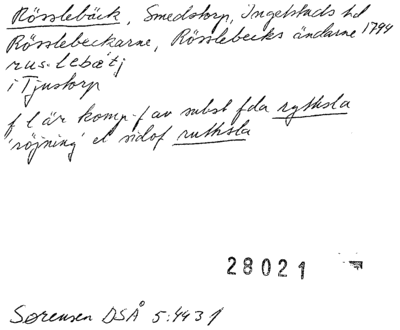 Rösslebäck, Smedstorp, Ingelstads hd
Rösslebeckarne, Rösslebecks ändarne 1794
rus·lebätj
i Tjustorp
f l är komp-f av subst fda rythsla
'röjning' el sidof ruthsla
28021
Sørensen DSÅ 5:443 f